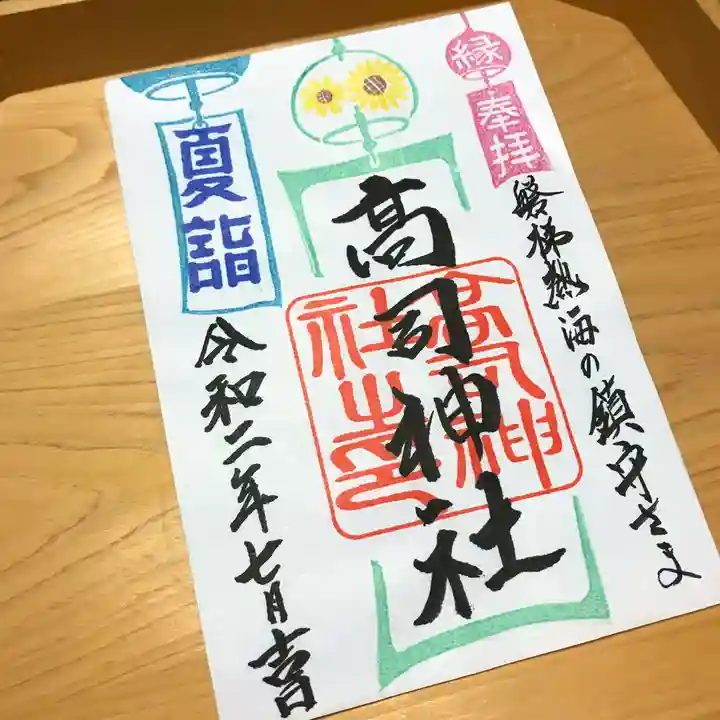 縁
奉拝
磐梯熱海の鎮守さま
高司神社
高司神
社之印
夏詣
令和二年七月吉日